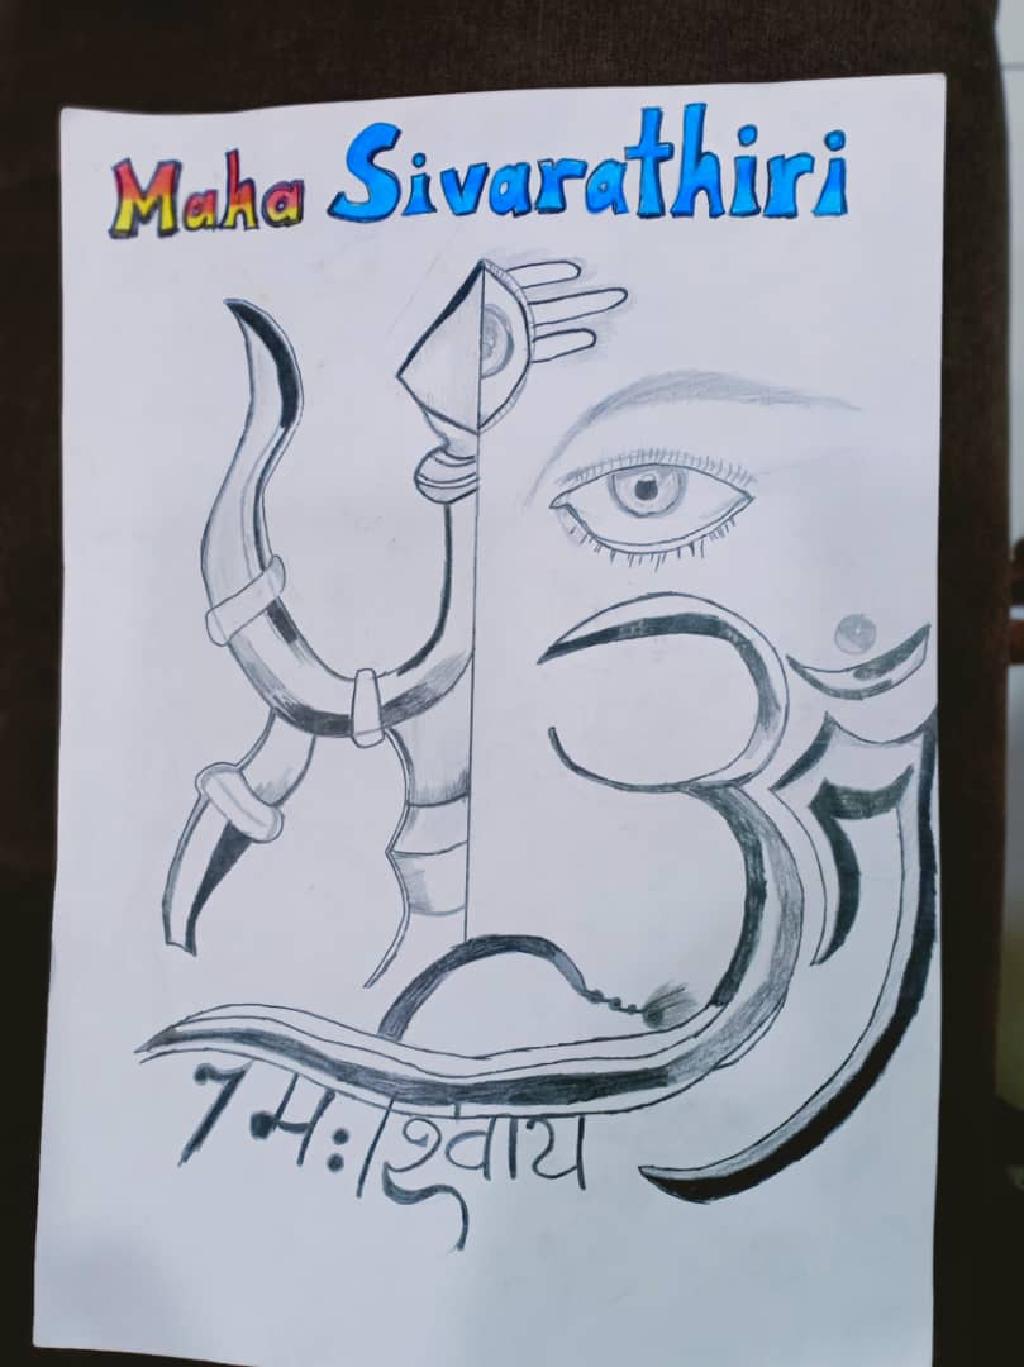 Maha Sivarathiri
ॐ
नमः शिवाय